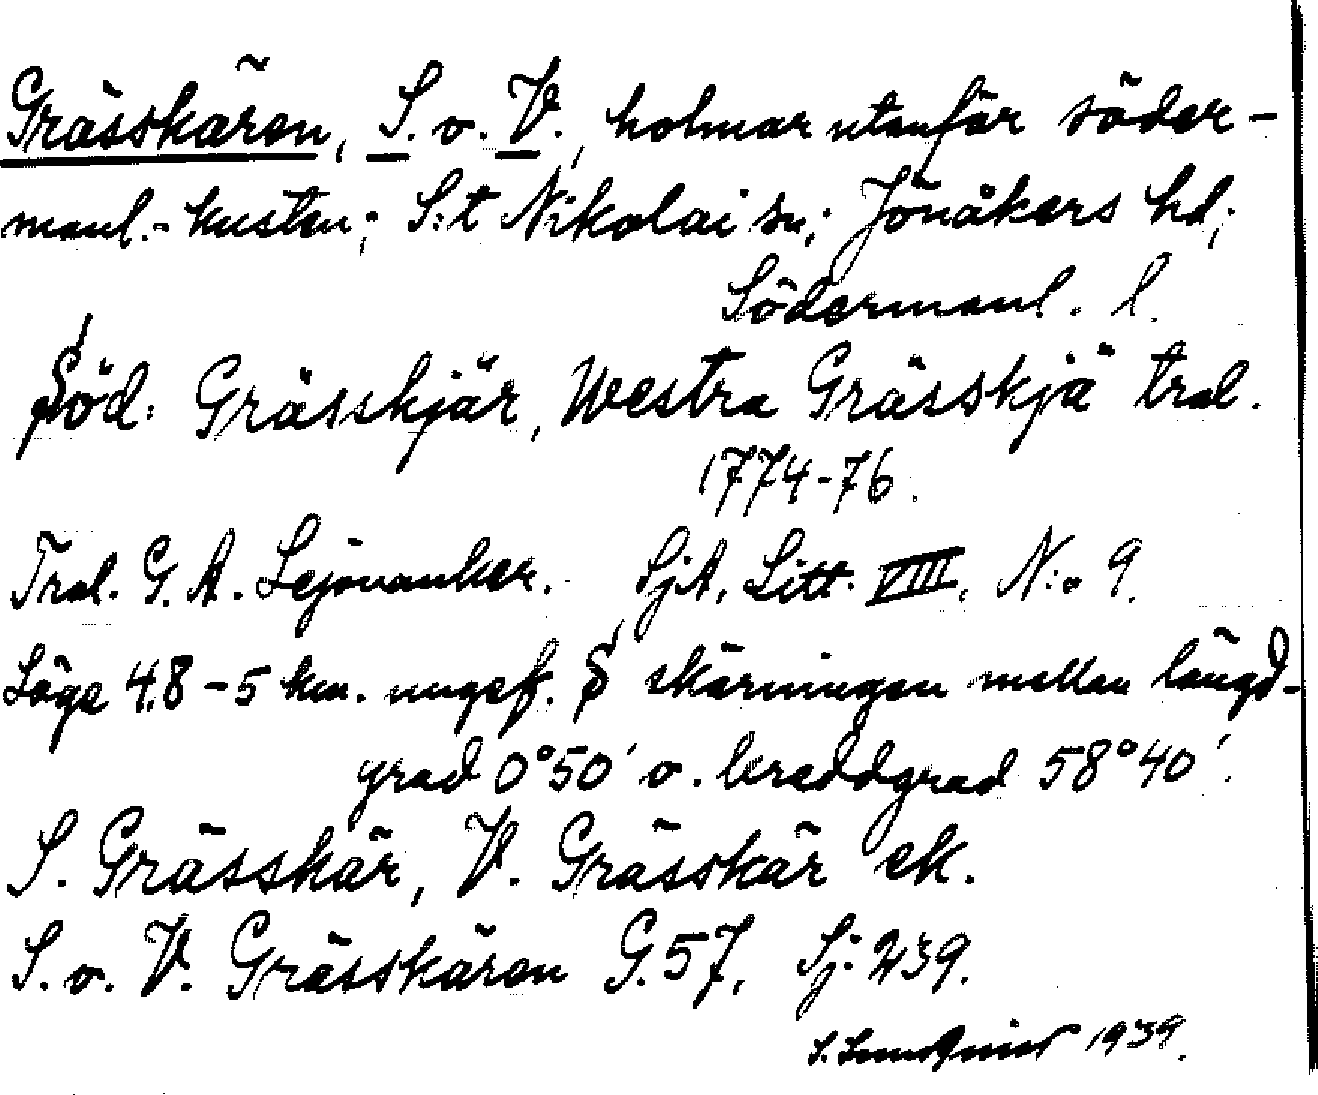 Grässkären, S. o. V., holmar utanför söder-
manl.-kusten; S:t Nikolai sn; Jönåkers hd;
Södermanl. l.
Söd: Grässkjär, Westra Grässkjä tral.
1774-76.
Tral. G. A. Lejonanker. SjA, Litt. VIII, N:o 9.
Läge 4.8-5 km. ungef. S skärningen mellan längd-
grad 0°50' o. breddgrad 58°40'.
S. Grässkär, V. Grässkär ek.
S. o. V. Grässkären G.57, Sj. 239.
1939.